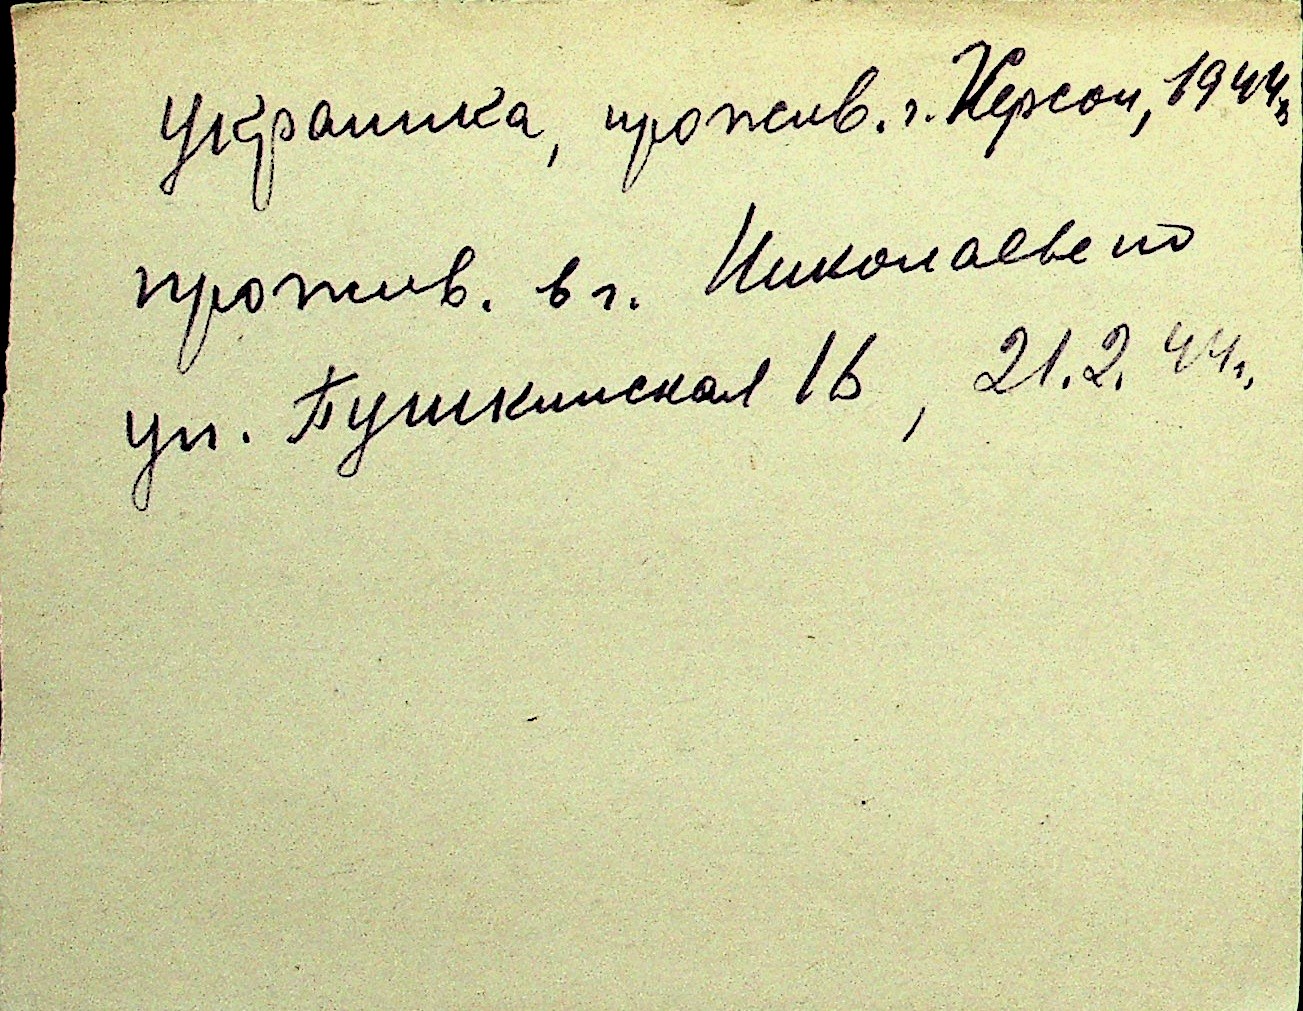 Украинка, прожив. г. Херсон, 1944г.
прожив. в г. Николаеве по
ул. Пушкинская 16, 21.2.44г.